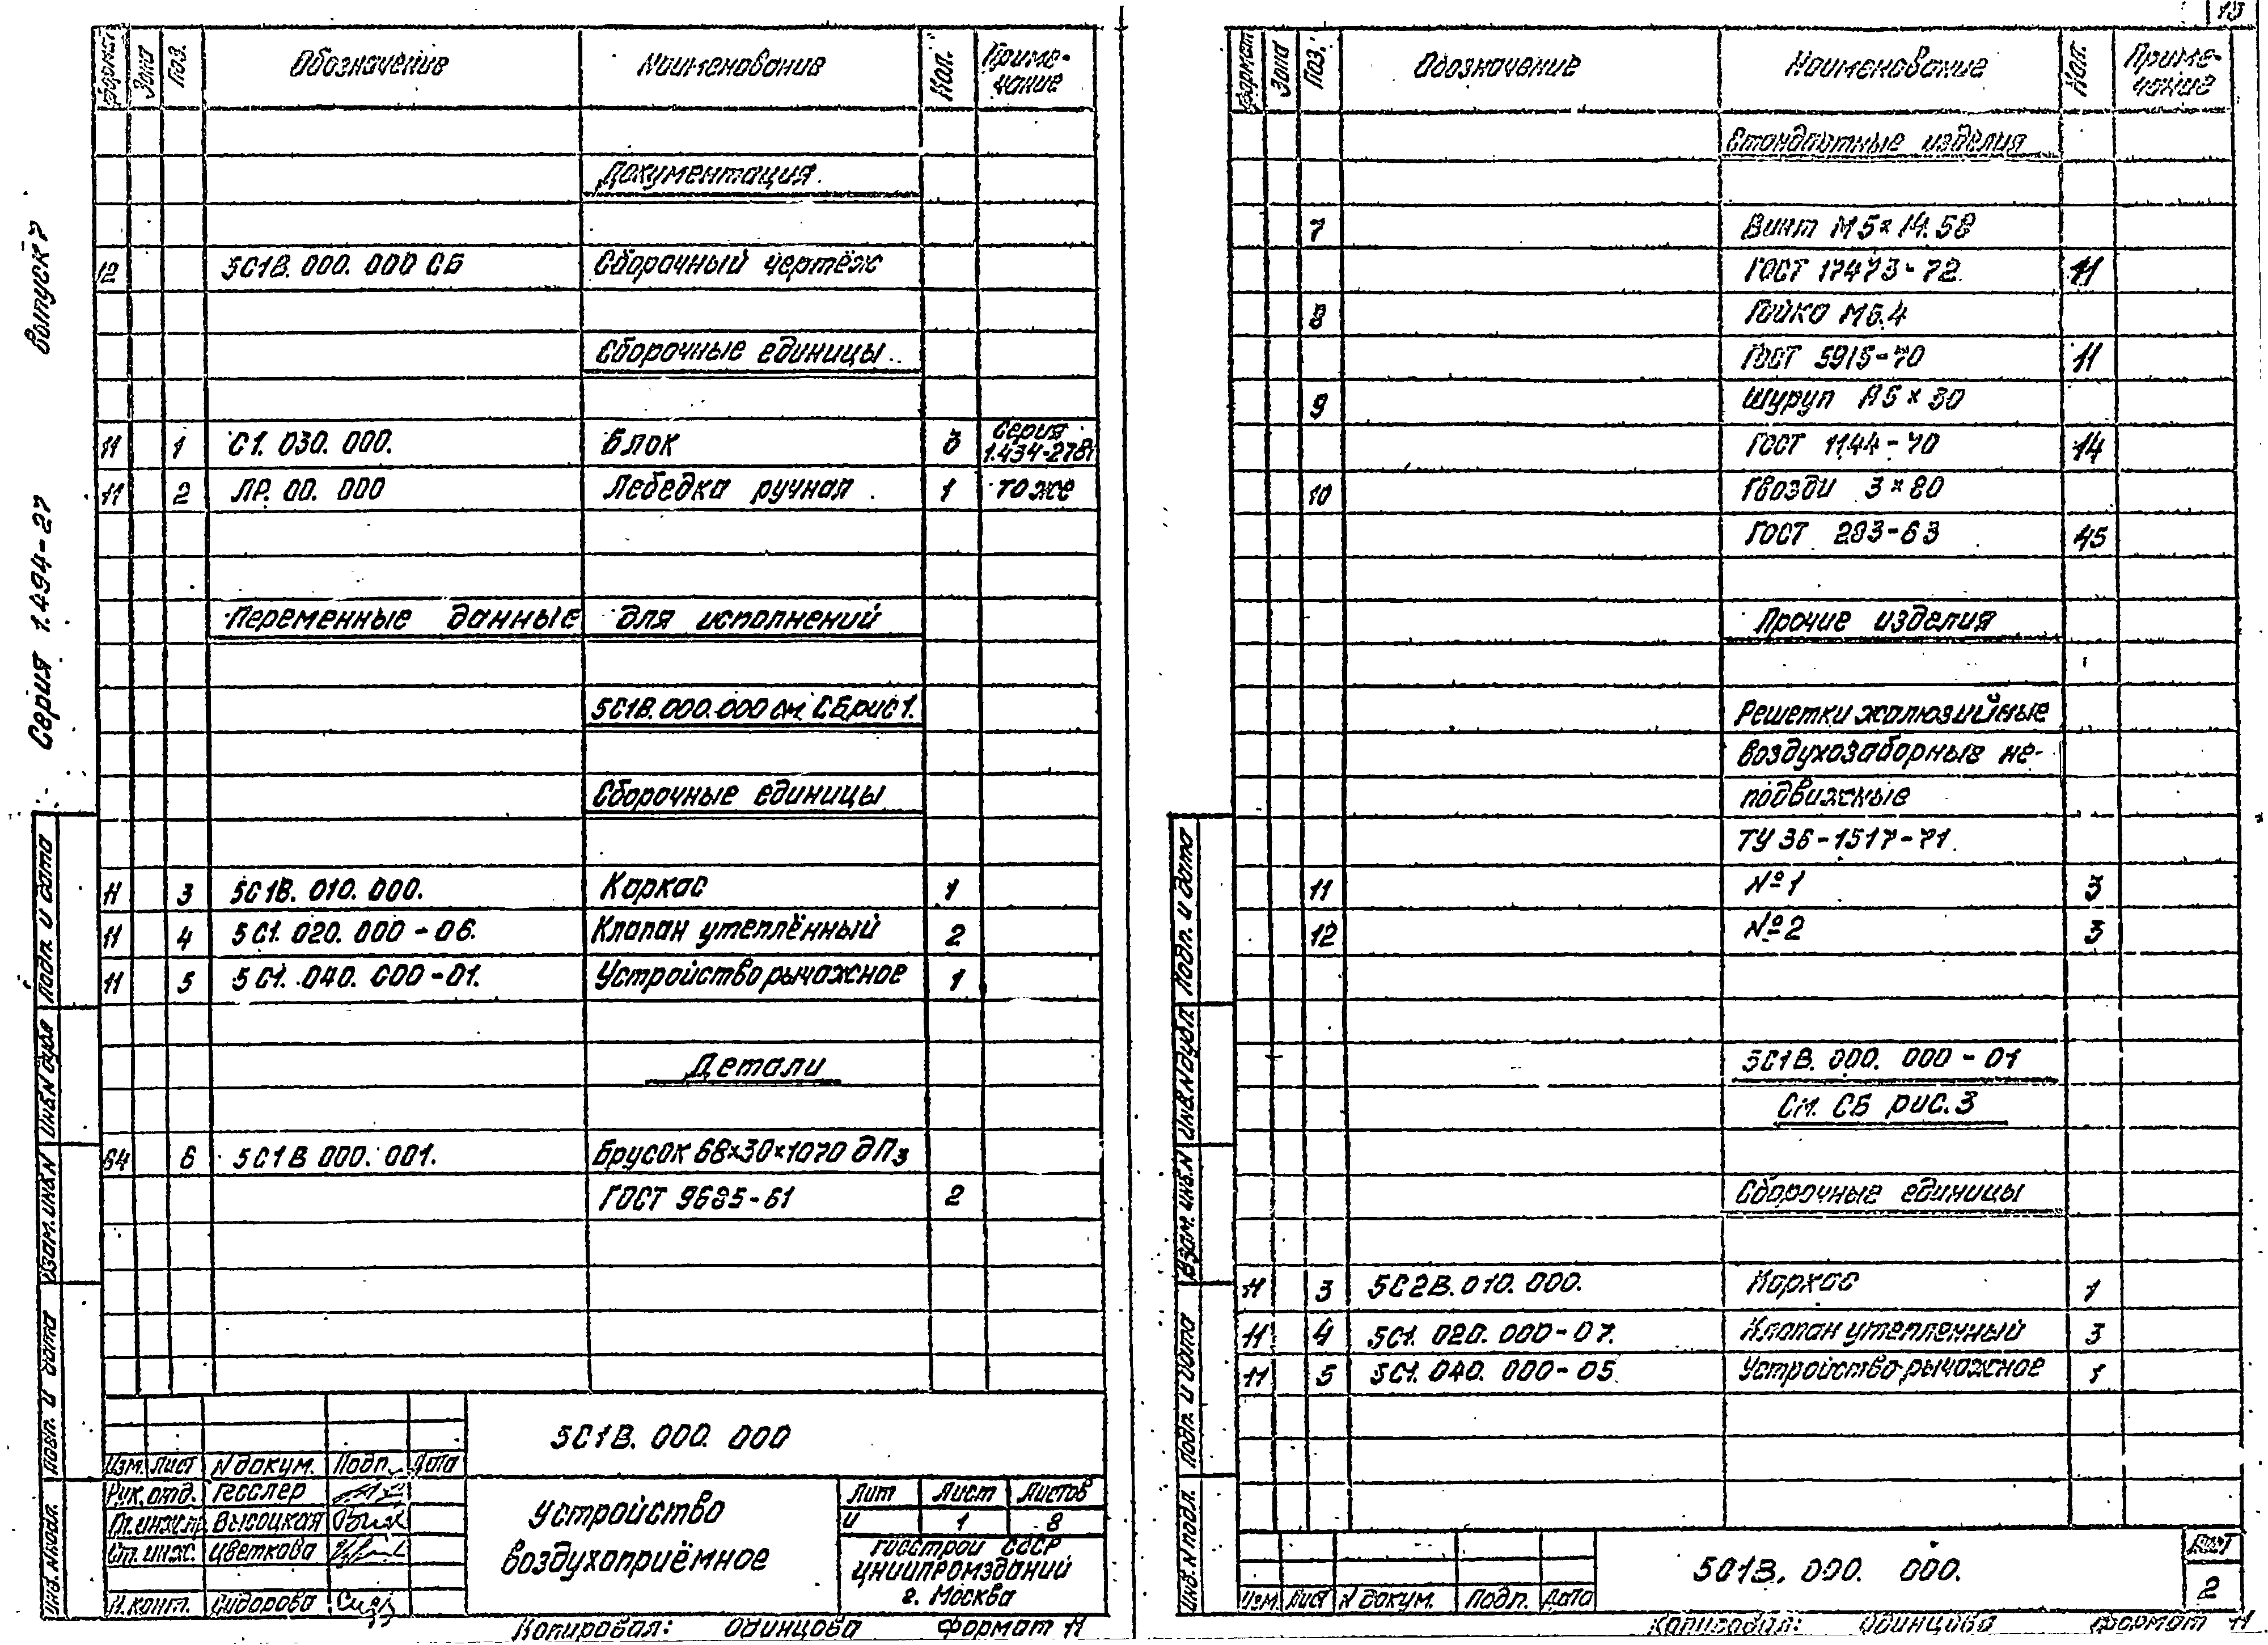 Серия 1.494-27 Выпуск 7
Формат Зона Поз. Обозначение Наименование Кол. Приме-
чание
Документация
12 5С1В.000.000 СБ Сборочный чертёж
Сборочные единицы
11 1 С1.030.000. Блок 3 Серия
11 2 ЛР.00.000 Лебедка ручная 1 то же
Переменные данные для исполнений
5С1В.000.000 см. СБ рис 1.
Сборочные единицы
11 3 5С1В.010.000. Каркас 1
11 4 5С1.020.000-06. Клапан утеплённый 2
11 5 5С1.040.000-01. Устройство рычажное 1
Детали
6 5С1В 000.001. Брусок 68×30×1070 ДП3
ГОСТ 9685-61 2
5С1В.000.000
Изм. Лист N докум. Подп. Дата
Рук. отд. Гесслер
Гл. инж. пр. Высоцкая
Ст. инж. Цветкова
Н. контр. Сидорова
Устройство
воздухоприёмное
Лит Лист Листов
И 1 8
Госстрой СССР
ЦНИИПРОМЗДАНИЙ
г. Москва
Копировал: Одинцова Формат 11
Подп. и дата
Инв. N дубл
Взам. инв. N
Подп. и дата
Инв. N подл.
13
Формат Зона Поз. Обозначение Наименование Кол. Приме-
чание
Стандартные изделия
7 Винт М5×14.58
ГОСТ 17473-72. 11
8 Гайка М5.4
ГОСТ 5915-70 11
9 Шуруп А5×30
ГОСТ 1144-70 14
10 Гвозди 3×80
ГОСТ 283-63 45
Прочие изделия
Решетки жалюзийные
воздухозаборные не-
подвижные
ТУ 36-1517-71.
11 №1 3
12 №2 3
5С1В.000.000-01
См. СБ рис. 3
Сборочные единицы
11 3 5С2В.010.000. Каркас 1
11 4 5С1.020.000-07. Клапан утепленный 3
11 5 5С1.040.000-05 Устройство рычажное 1
5С1В.000.000.
Лист
2
Изм. Лист N докум. Подп. Дата
Копировал: Одинцова Формат 11
Подп. и дата
Инв. N дубл.
Взам. инв. N
Подп. и дата
Инв. N подл.